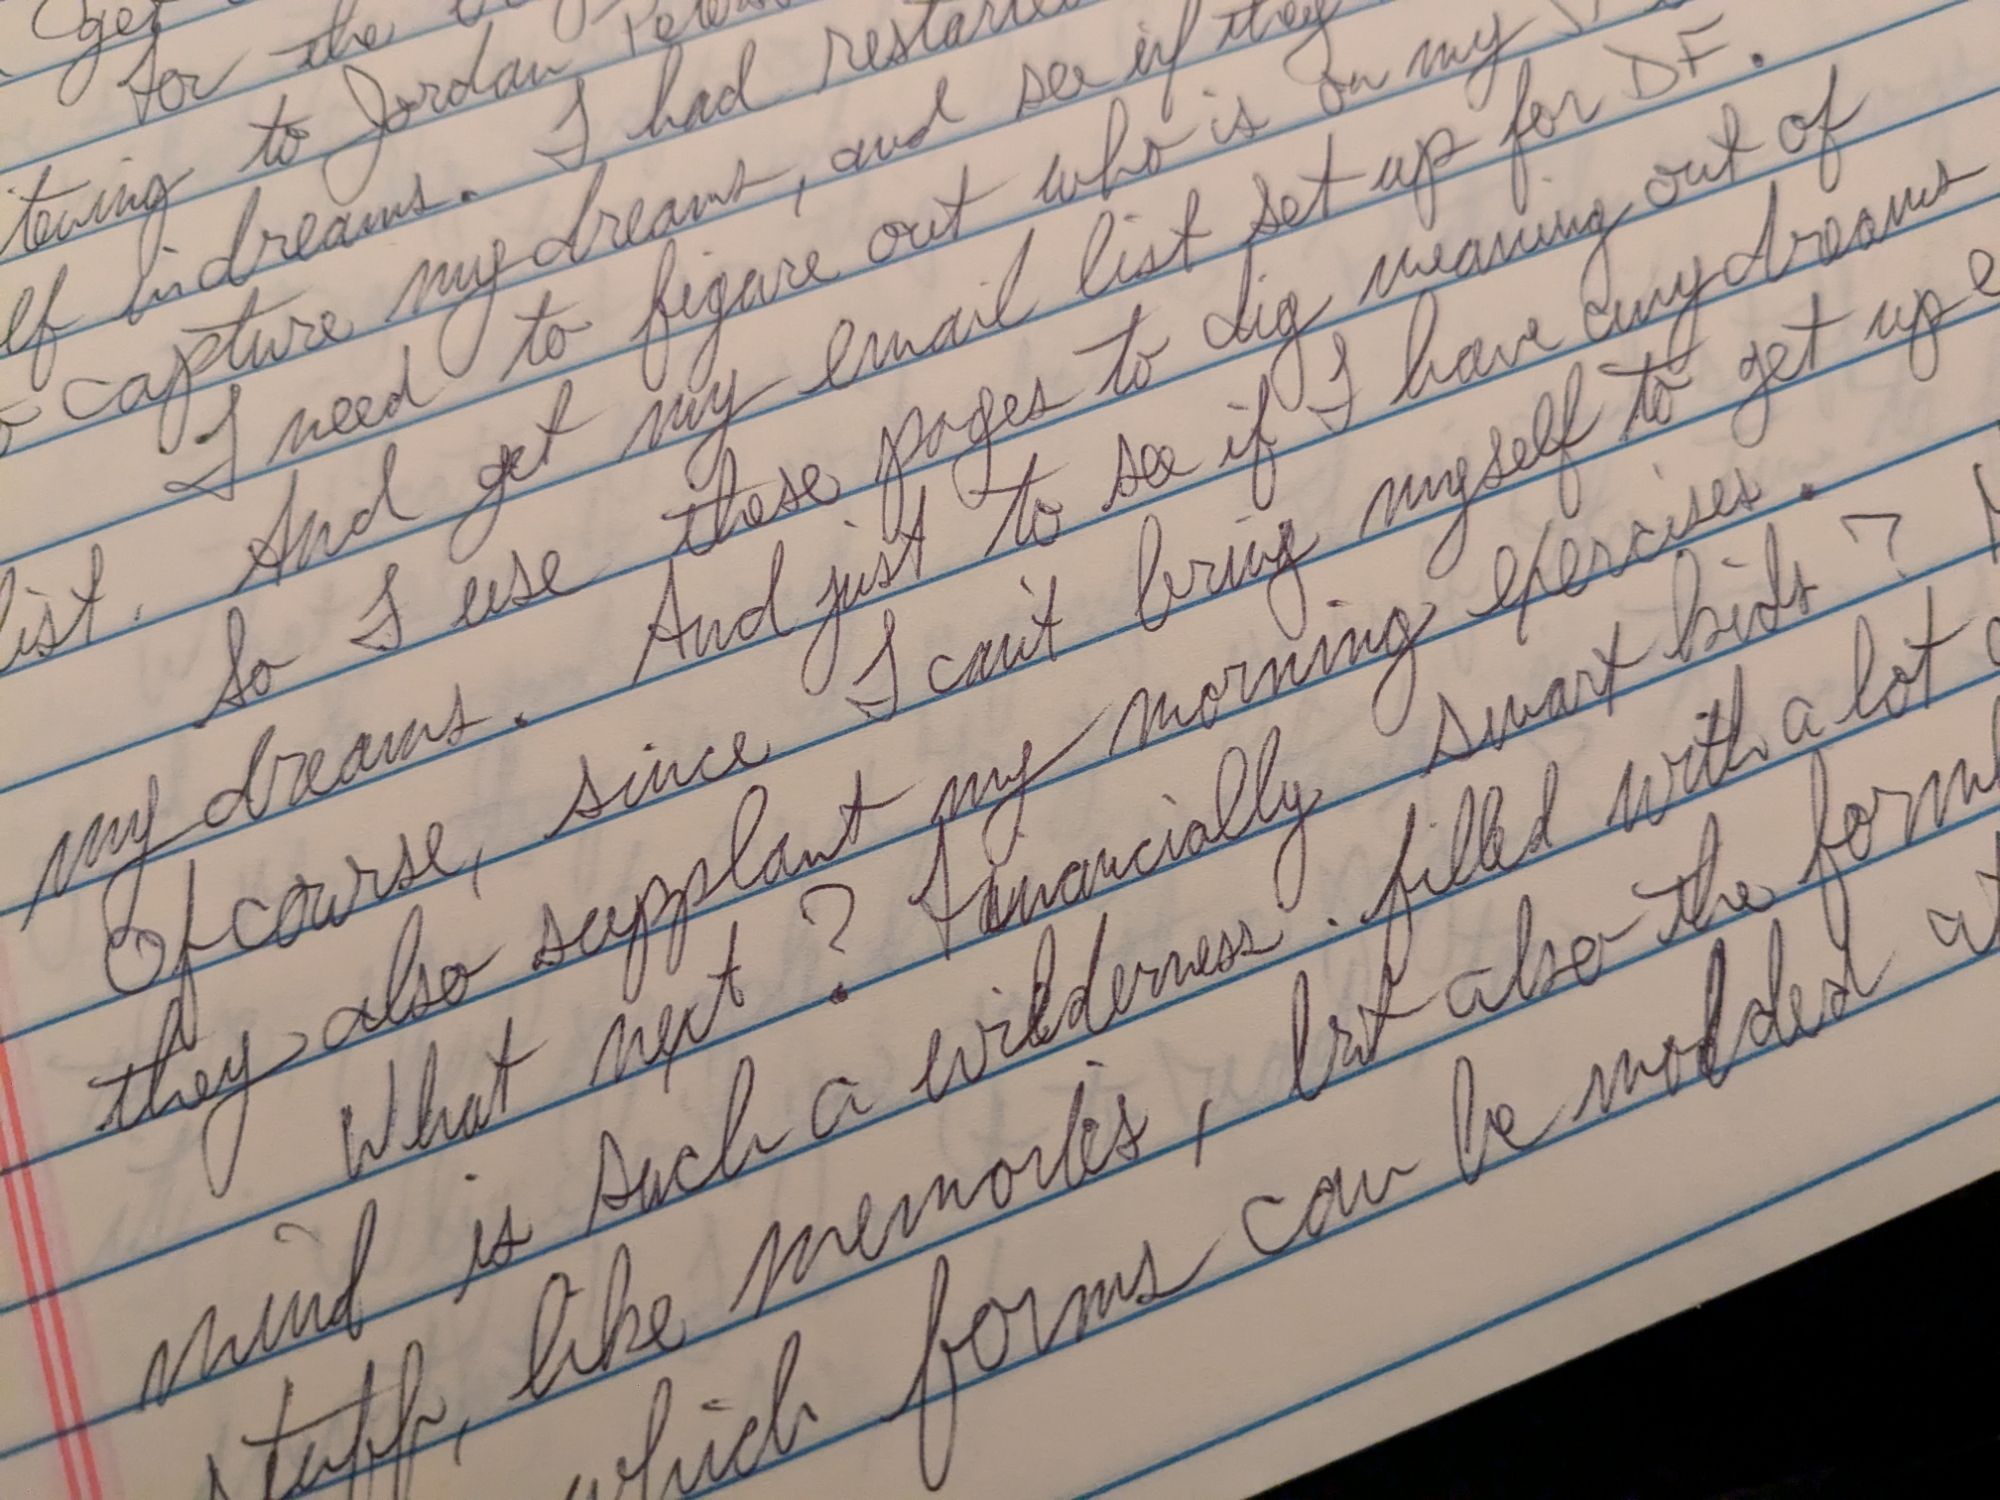 get
for the
to Jordan
in dreams. I had
capture my dreams, and see if they
I need to figure out who is on my
list. And get my email list set up for DF.
So I use these pages to dig meaning out of
my dreams. And just to see if I have any dreams
Of course, since I can't bring myself to get up
they also supplant my morning exercises.
What next? Financially smart kids?
mind is such a wilderness. filled with a lot
stuff, like memories, but also the
which forms can be molded